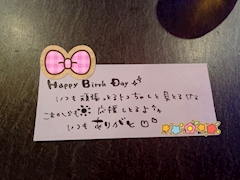 Happy Birth Day
いつも頑張っとるトコちゃんと見とるけん
これからも 応援しとるよ
いつもありがと